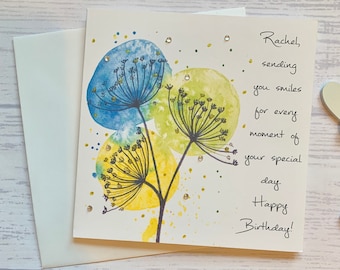 Rachel,
sending
you smiles
for every
moment of
your special
day.
Happy
Birthday!